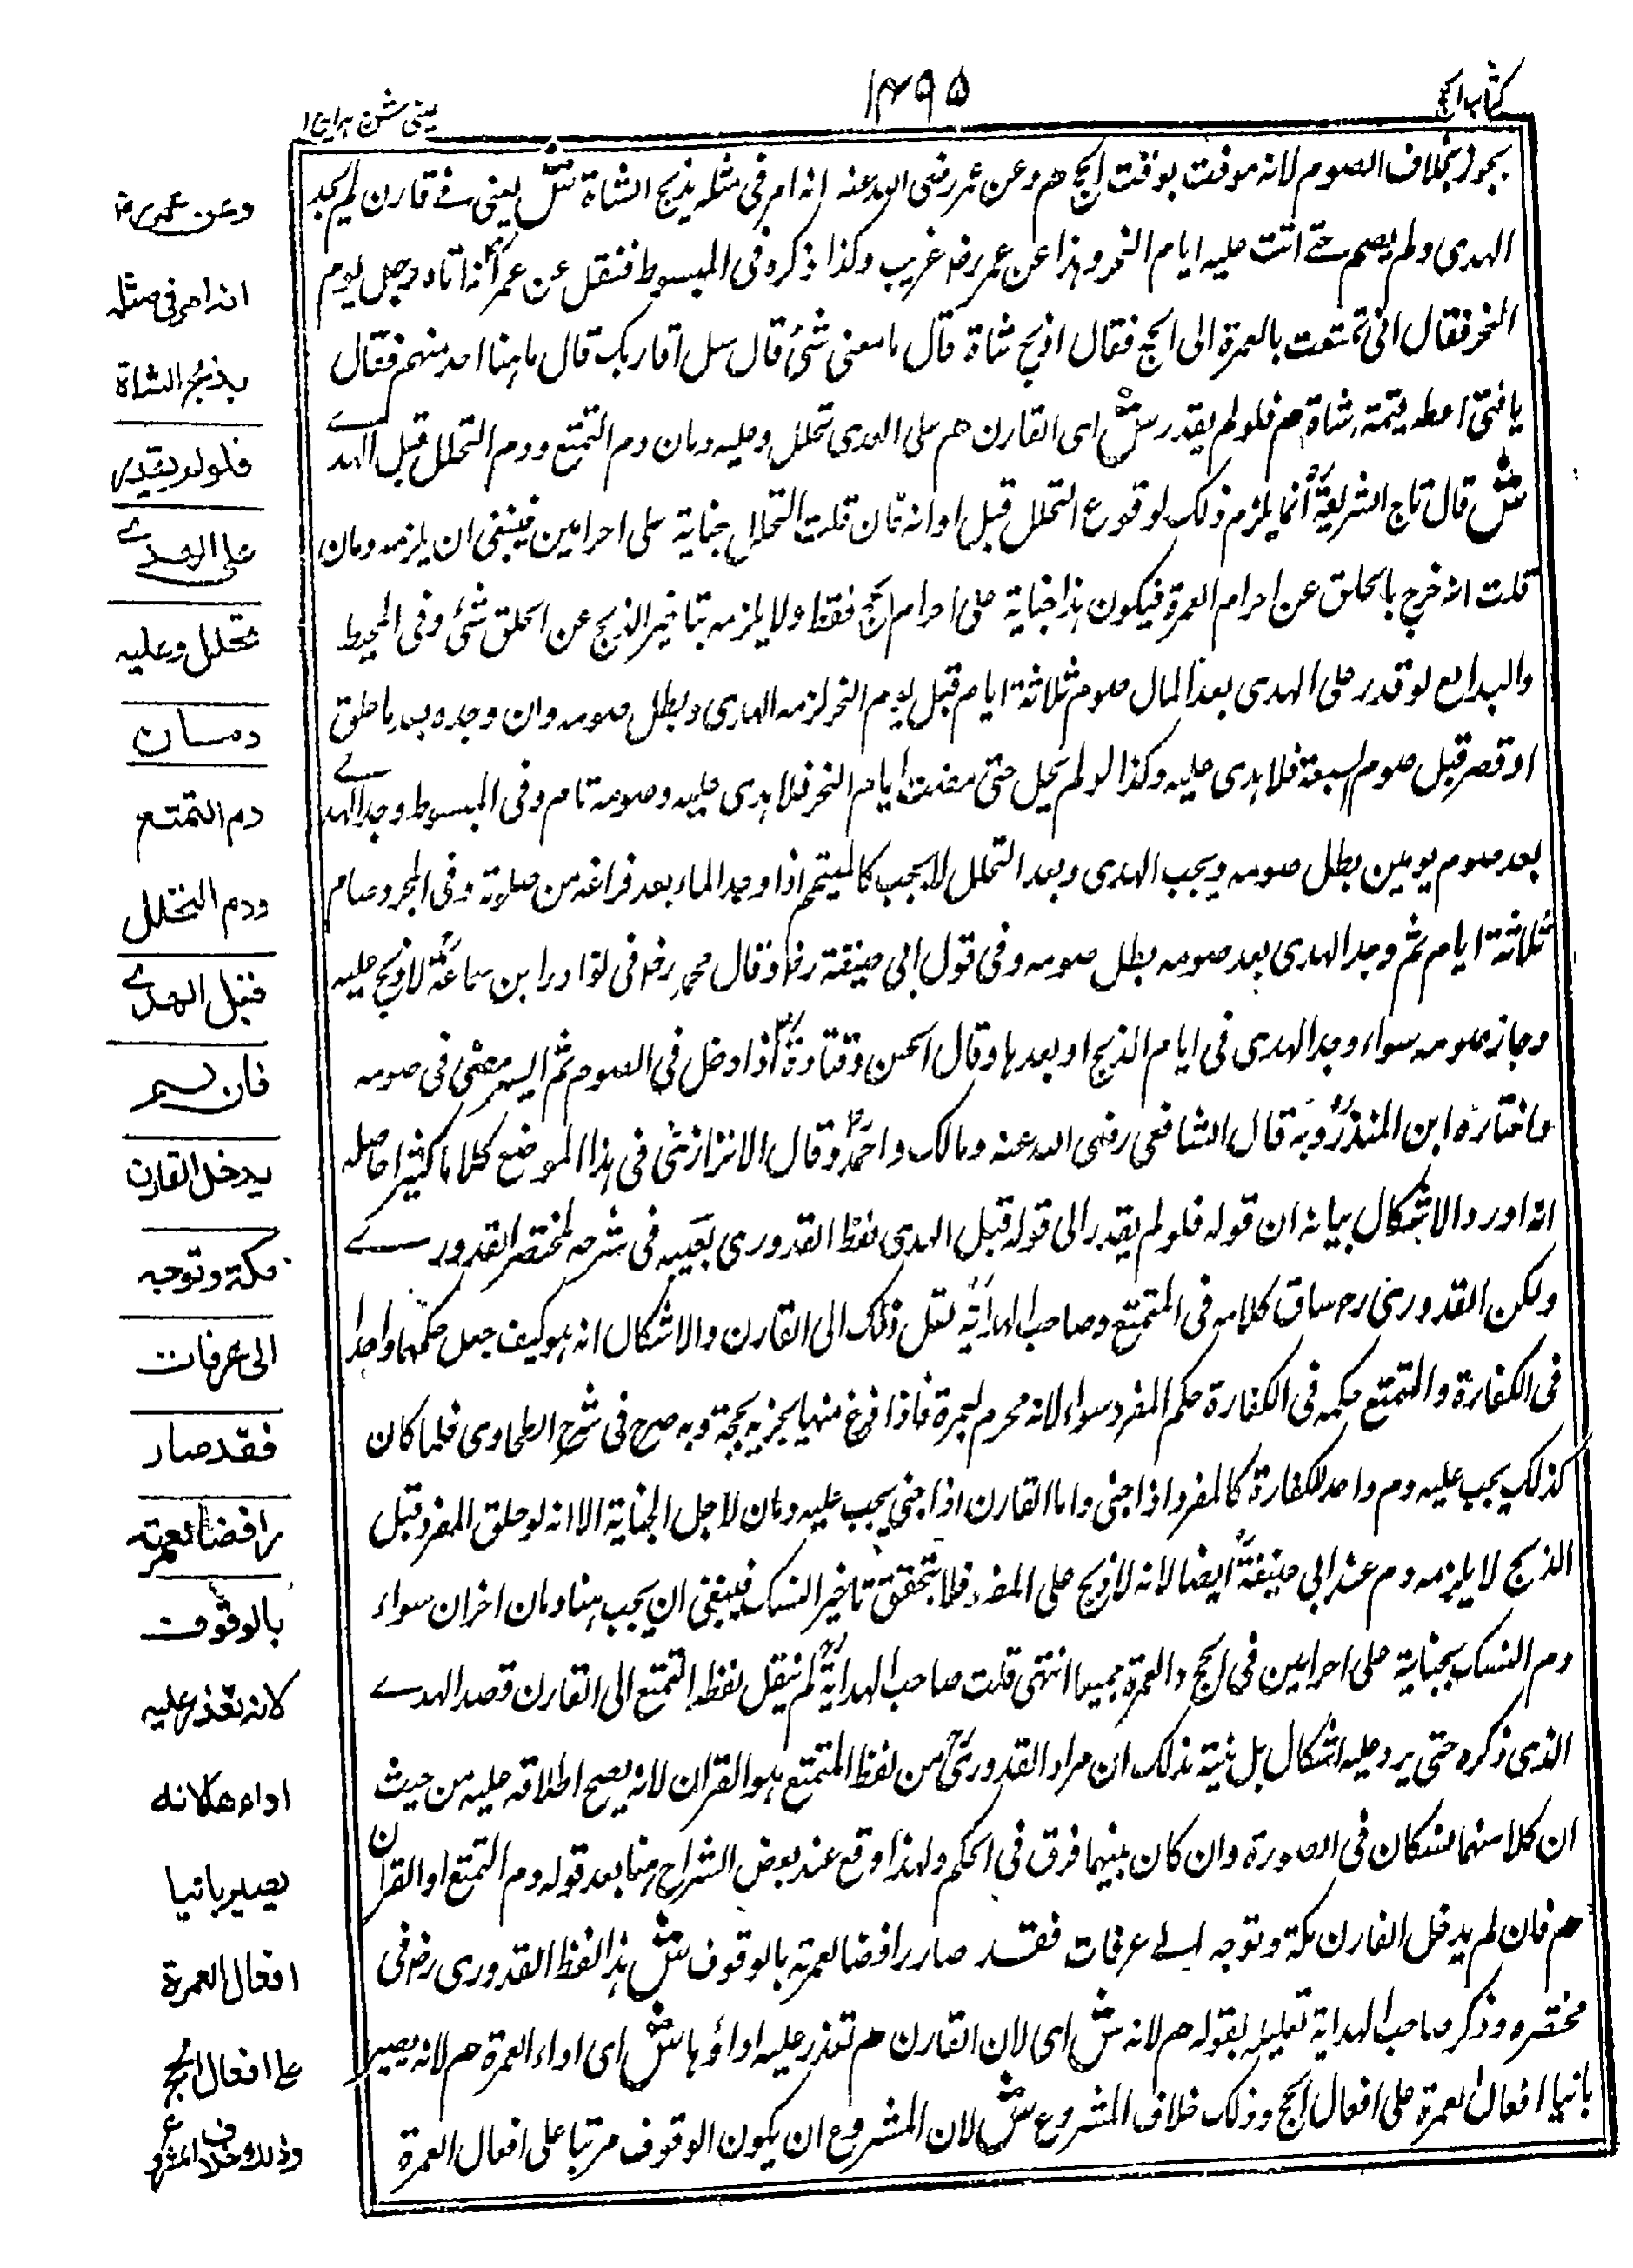 كتاب الحج
١٤٩٥
عینی شرح ہدایہ ۱
یجوز بخلاف الصوم لانه موقت بوقت الحج هم وعن عمر رضی الله عنه انه امر فی مثله بذبح الشاة ش یعنی فے قارن لم یجد
الهدی ولم یصم حتے اتت علیه ایام النحر وہذا عن عمر رضہ غریب وکذا ذکره فی المبسوط فنقل عن عمر رضہ انه اتاه رجل یوم
النحر فقال انی تمتعت بالعمرة الی الحج فقال اذبح شاة قال ما معی شئ قال سل اقاربک قال ما ہنا احد منهم فقال
یا فتی اعطه قیمة شاة هم فلو لم یقدر ش ای القارن هم علی الهدی تحلل وعلیه دمان دم التمتع ودم التحلل قبل الهدے
ش قال تاج الشریعة رح انما یلزم ذلک لوقوع التحلل قبل اوانه فان قلت التحلل جنایة علی احرامین فینبغی ان یلزمه دمان
قلت انه خرج بالحلق عن احرام العمرة فیکون ہذا جنایة علی احرام الحج فقط ولا یلزمه بتاخیر الذبح عن الحلق شئ وفی المحیط
والبدایع لو قدر علی الهدی بعد المال صوم ثلاثة ایام قبل یوم النحر لزمه الهدی وبطل صومه وان وجده بعد ما حلق
او قصر قبل صوم السبعة فلا ہدی علیه وکذا لو لم یحل حتی مضت ایام النحر فلا ہدی علیه وصومه تام وفی المبسوط وجد الهدے
بعد صوم یومین بطل صومه ویجب الهدی وبعد التحلل لا یجب کالمتیمم اذا وجد الماء بعد فراغه من صلوٰته وفی المجرد صام
ثلاثة ایام ثم وجد الهدی بعد صومه بطل صومه وفی قول ابی حنیفة رضہ وقال محمد رضہ فی نوادر ابن سماعة رح لا ذبح علیه
وجاز صومه سواء وجد الهدی فی ایام الذبح او بعدہا وقال الحسن وقتادة رض اذا دخل فی الصوم ثم ایسر مضیٰ فی صومه
واختاره ابن المنذر رح وبه قال الشافعی رضی الله عنه ومالک واحمد رح وقال الاترازی رح فی ہذا الموضع کلاما کثیرا حاصله
انه اورد الاشکال بیانه ان قوله فلو لم یقدر الی قوله قبل الهدی لفظ القدوری بعینه فی شرحه لمختصر القدورے
ولکن القدوری رح ساق کلامه فی المتمتع وصاحب الهدایة نقل ذلک الی القارن والاشکال انه ہو کیف جعل حکمهما واحدا
فی الکفارة والمتمتع حکمه فی الکفارة حکم المفرد سواء لانه محرم لعمرة فاذا فرغ منها یحرم بحجة وبه صرح فی شرح الطحاوی فلما کان
کذلک یجب علیه دم واحد للکفارة کالمفرد اذا جنی واما القارن اذا جنی یجب علیه دمان لاجل الجنایة الا انه لو حلق المفرد قبل
الذبح لا یلزمه دم عند ابی حنیفة رح ایضا لانه لا ذبح علی المفرد فلا یتحقق تاخیر النسک فینبغی ان یجب ہنا دمان اخران سواء
دم النسک بجنایة علی احرامین فی الحج والعمرة جمیعا انتهی قلت صاحب الهدایة رح لم ینقل لفظه التمتع الی القارن قصد الهدے
الذی ذکره حتی یرد علیه اشکال بل نبه بذلک ان مراد القدوری رح من لفظ المتمتع ہو القران لانه یصح اطلاقه علیه من حیث
ان کلا منهما نسکان فی الصورة وان کان بینهما فرق فی الحکم ولهذا وقع عند بعض الشراح ہنا بعد قوله دم التمتع او القران
هم فان لم یدخل القارن مکة وتوجه الے عرفات فقد صار رافضا لعمرته بالوقوف ش ہذا لفظ القدوری رضہ فی
مختصره وذکر صاحب الهدایة تعلیله بقوله هم لانه ش ای لان القارن هم تعذر علیه اداؤہا ش ای اداء العمرة هم لانه یصیر
بانیا افعال العمرة علی افعال الحج وذلک خلاف المشروع ش لان المشروع ان یکون الوقوف مرتبا علی افعال العمرة
وعن عمر رضہ
انه امر فی مثله
بذبح الشاة
فلو لم یقدر
علی الهدے
تحلل وعلیه
دمان
دم التمتع
ودم التحلل
قبل الهدے
فان لم
یدخل القارن
مکة وتوجه
الی عرفات
فقد صار
رافضا لعمرته
بالوقوف
لانه تعذر علیه
اداءها لانه
یصیر بانیا
افعال العمرة
علی افعال الحج
وذلک خلاف المشروع